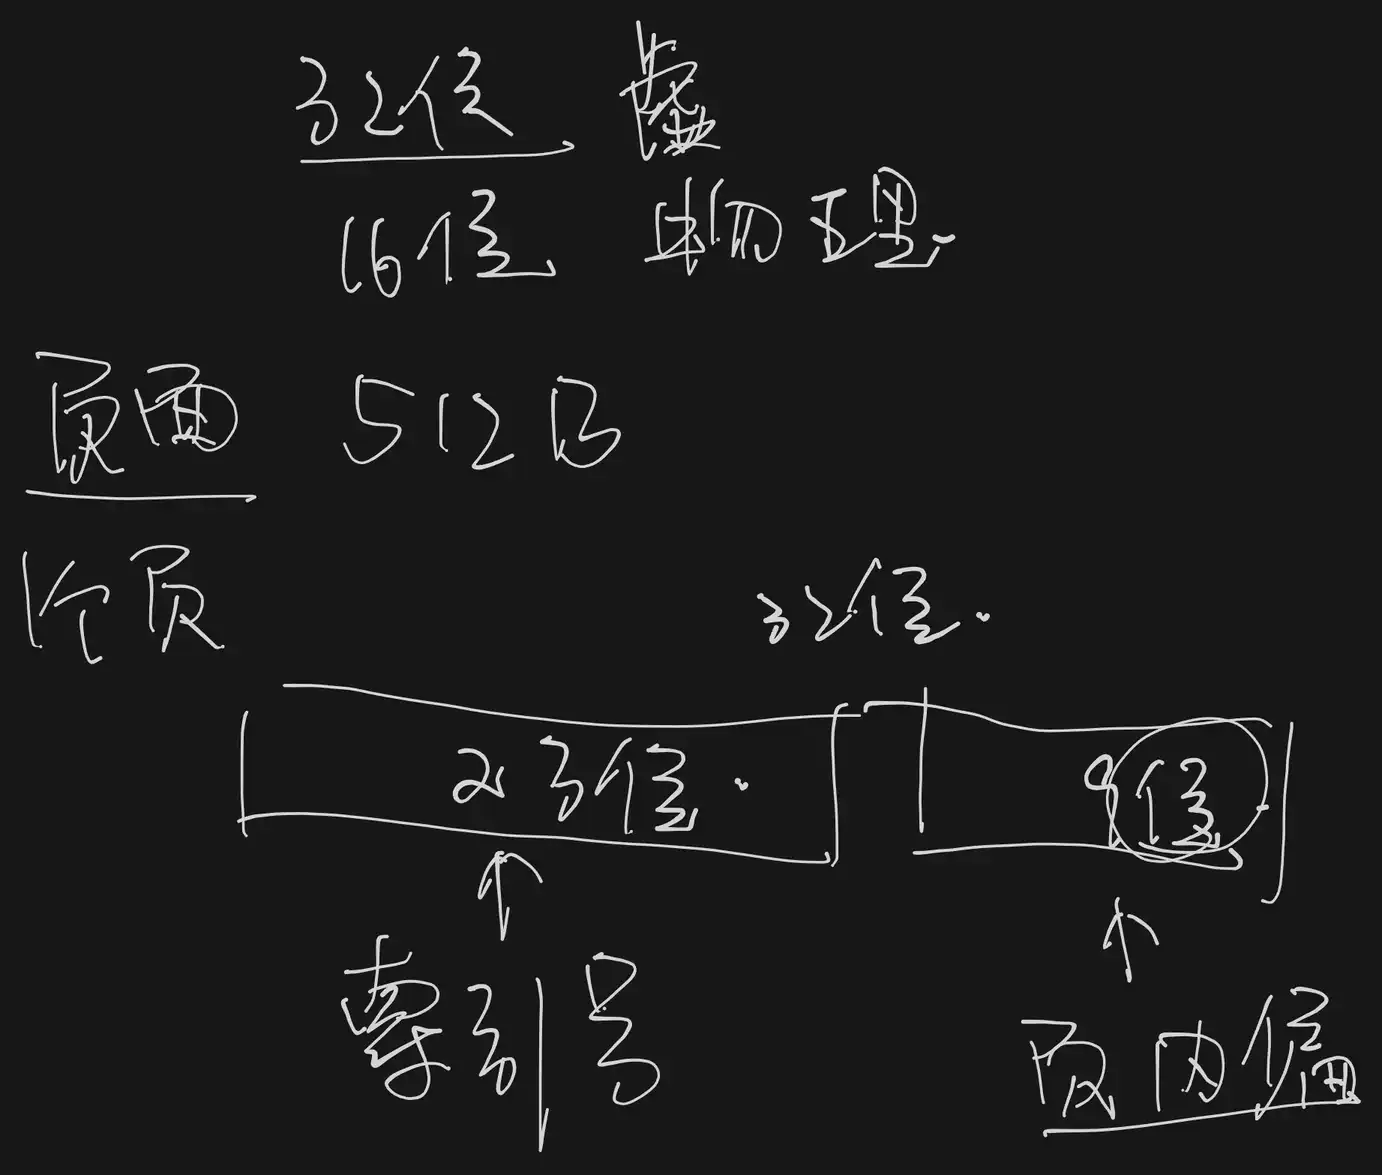 32位 虚
16位 物理
页面 512B
1个页
32位.
23位. 9位
索引号 页内偏